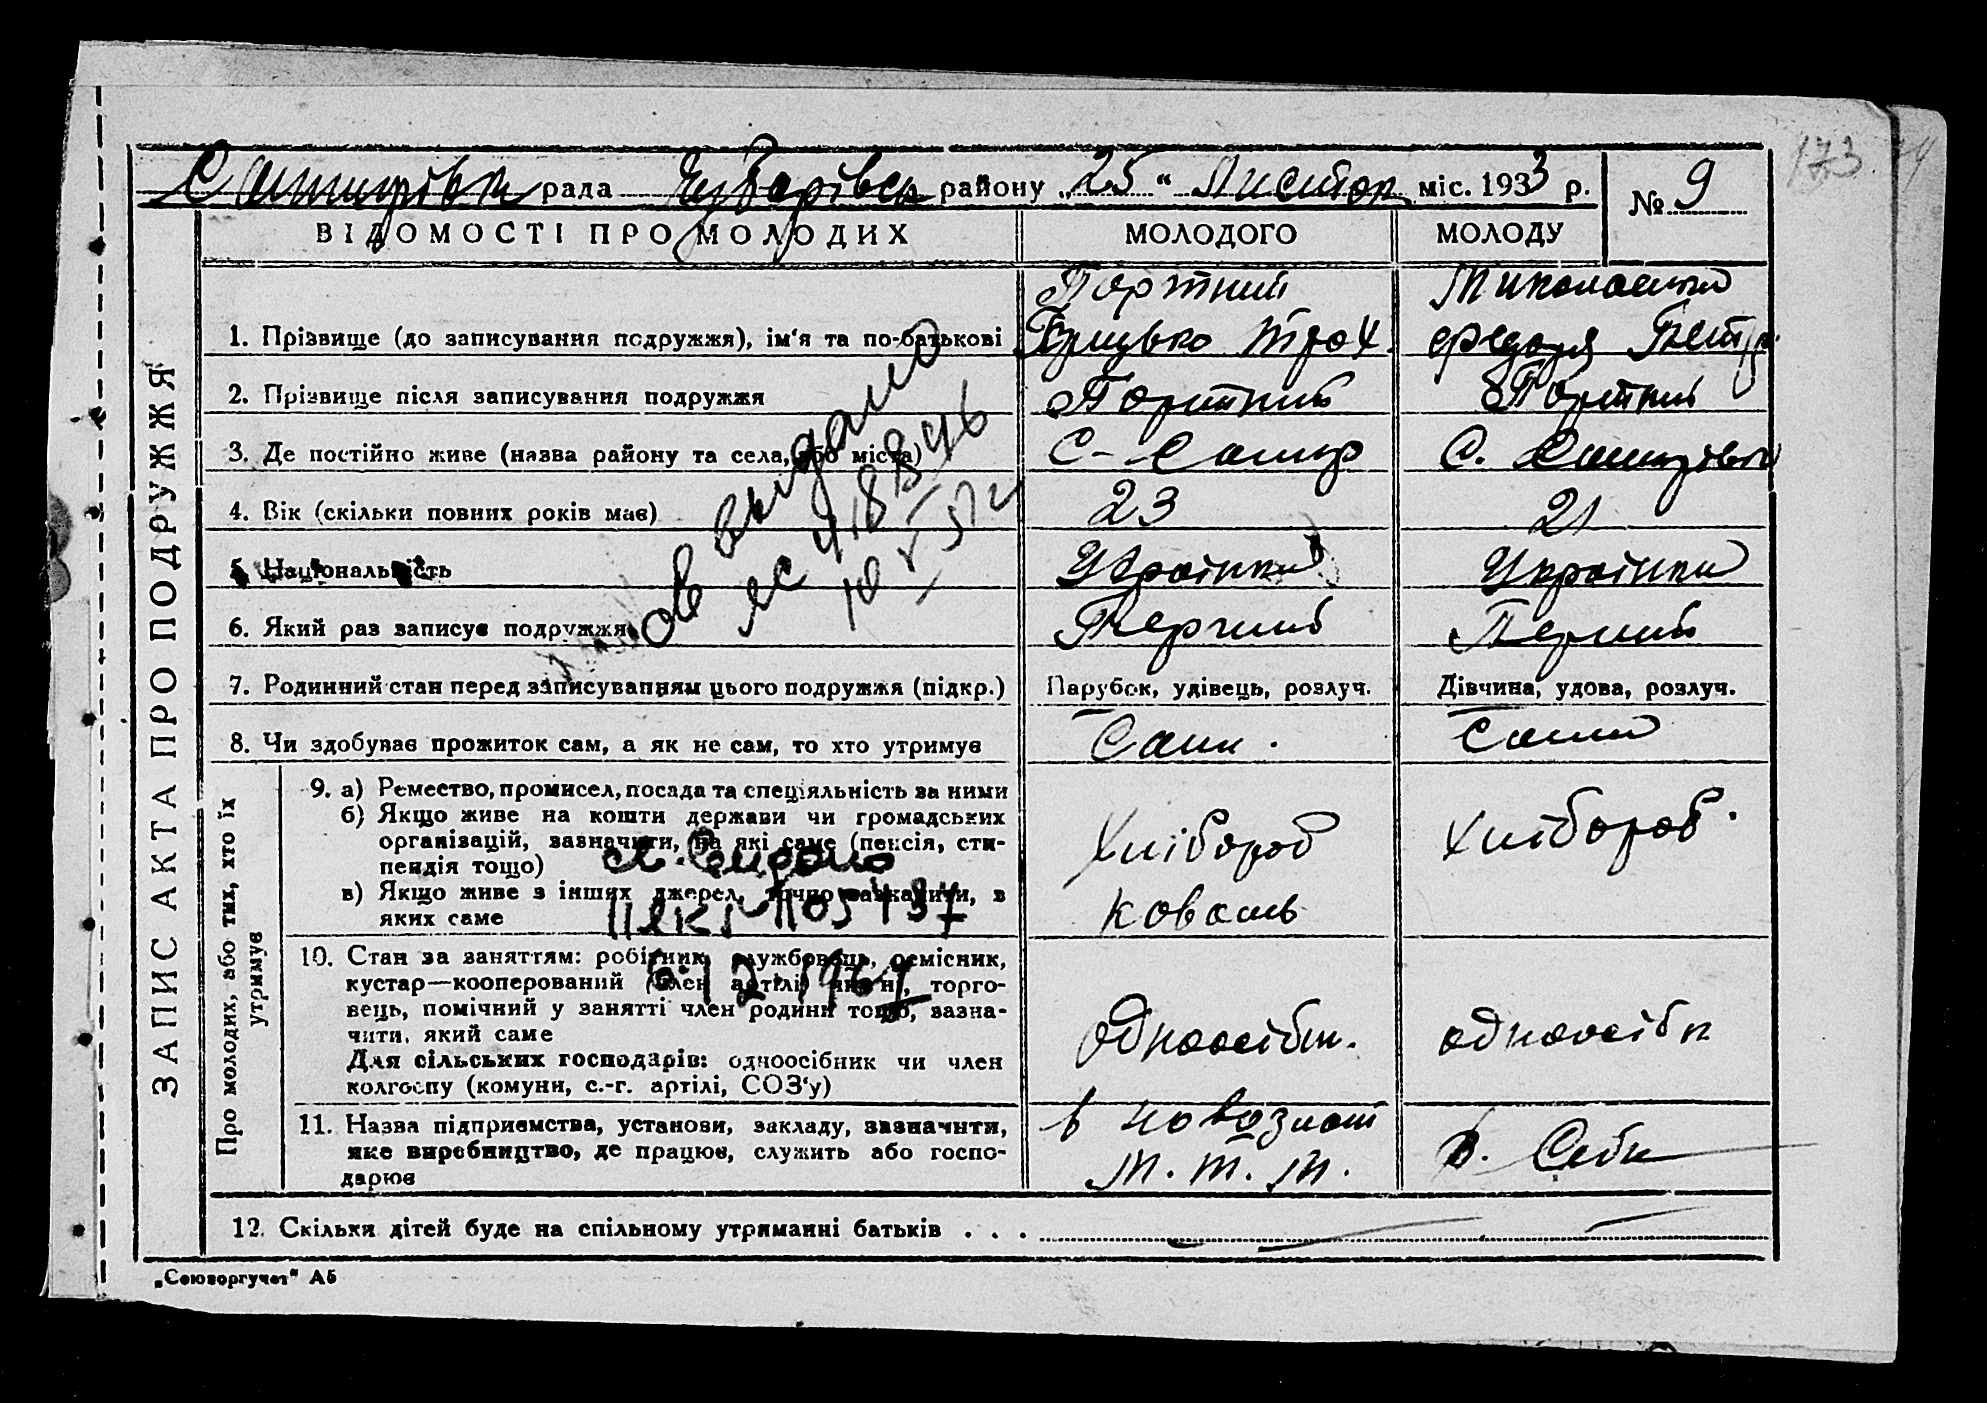 173
рада Чубарівськ району „25“ Листоп міс. 1933 р. № 9
ВІДОМОСТІ ПРО МОЛОДИХ МОЛОДОГО МОЛОДУ
ЗАПИС АКТА ПРО ПОДРУЖЖЯ
Портний Миколаенко
1. Прізвище (до записування подружжя), ім'я та по-батькові Грицько Трох. Федося Петр.
2. Прізвище після записування подружжя Портний Портний
3. Де постійно живе (назва району та села, або міста) С. С.
4. Вік (скільки повних років має) 23 21
5. Національність Українець Українка
6. Який раз записує подружжя Перший Перший
7. Родинний стан перед записуванням цього подружжя (підкр.) Парубок, удівець, розлуч. Дівчина, удова, розлуч.
8. Чи здобуває прожиток сам, а як не сам, то хто утримує Сам. Сама
Про молодих, або тих, хто їх
утримує
9. а) Ремество, промисел, посада та спеціяльність за ними
б) Якщо живе на кошти держави чи громадських
організацій, зазначити, на які саме (пенсія, сти-
пендія тощо)
в) Якщо живе з інших джерел, точно зазначити, з
яких саме
Хлібороб Хлібороб.
коваль
10. Стан за заняттям: робітник, службовець, ремісник,
кустар—кооперований (член артілі) чи ні, торго-
вець, помічний у занятті член родини тощо, зазна-
чити, який саме
Для сільських господарів: одноосібник чи член
колгоспу (комуни, с.-г. артілі, СОЗ'у)
одноосібн. одноосібн
11. Назва підприємства, установи, закладу, зазначити,
яке виробництво, де працює, служить або госпо-
дарює
в
М. Т. М. в. Себе
12. Скільки дітей буде на спільному утриманні батьків . . .
„Союзоргучет“ А5
ов выдано